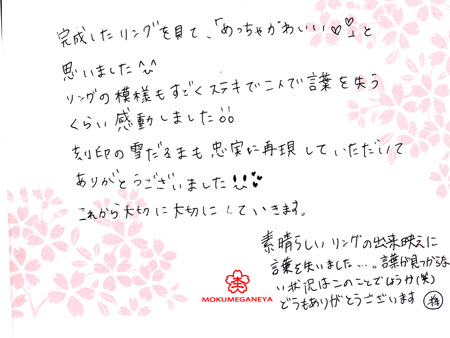 完成したリングを見て、「めっちゃかわいい♡♡」と
思いました^^
リングの模様もすごくステキで二人で言葉を失う
くらい感動しました!!
刻印の雪だるまも忠実に再現していただいて
ありがとうございました!!
これから大切に大切にしていきます。
素晴らしいリングの出来映えに
言葉を失いました…。言葉が見つからな
い状況はこのことでしょうか(笑)
どうもありがとうございます
MOKUMEGANEYA